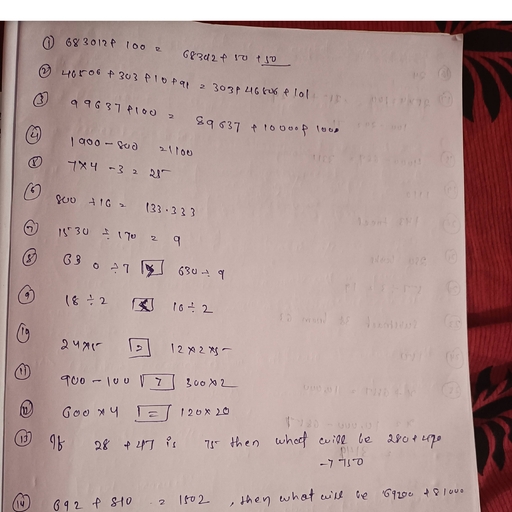 ① 683012+ 100 = 68302+ 50 + 50
② 46506 + 303 + 10 + 91 = 303+ 46506 + 101
③ 99637+100 = 89637 + 10000+ 1000
④ 1900 - 800 = 1100
⑤ 7×4 - 3 = 25
⑥ 800 ÷ 16 = 133.333
⑦ 1530 ÷ 170 = 9
⑧ 63 0 ÷ 7 630 ÷ 9
⑨ 18 ÷ 2 16 ÷ 2
⑩ 24×5 = 12×2×5
⑪ 900 - 100 > 300×2
⑫ 600 × 4 = 120 × 20
⑬ If 28 + 47 is 75 then what will be 280+ 470
→ 750
⑭ 692 + 810 = 1502 , then what will be 69200 + 81000